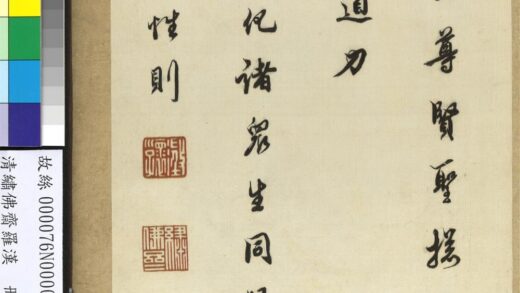 尊賢聖摂
道力
化諸衆生同
性則
故絲 000076N0000
清繡佛齋羅漢 冊